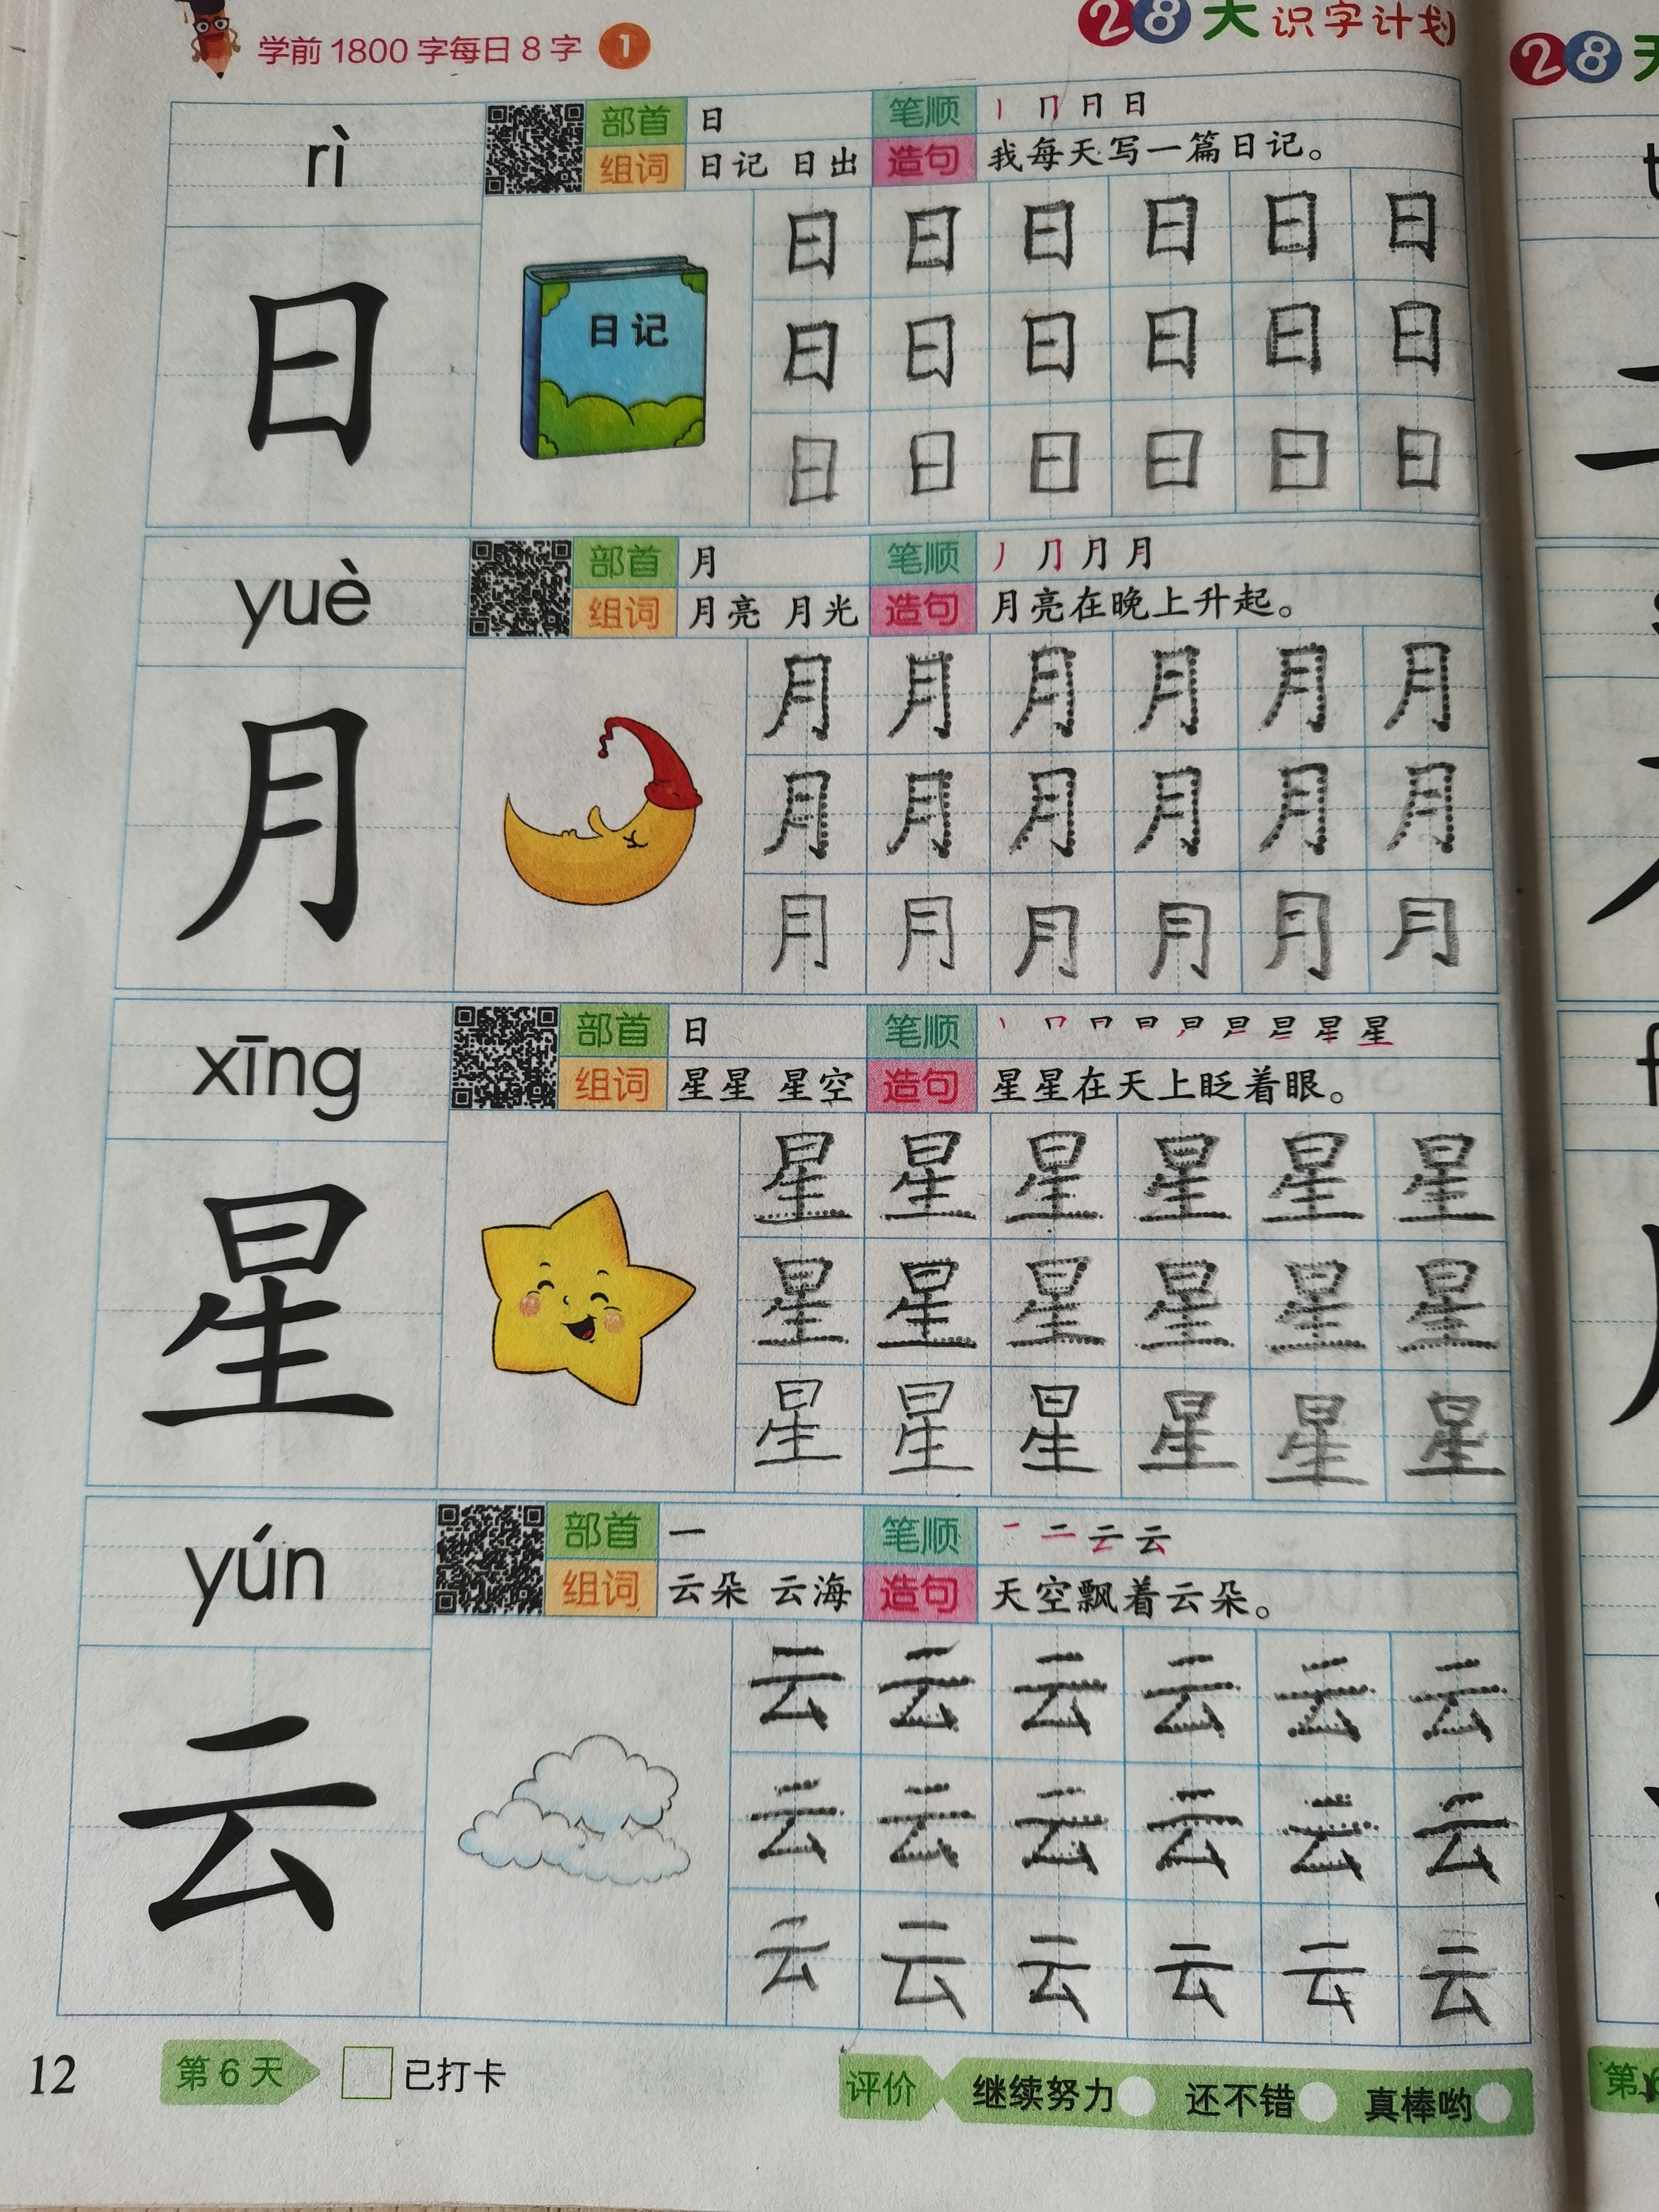 学前 1800 字每日 8 字 1
28天识字计划
rì
部首 日 笔顺 丨 冂 日 日
组词 日记 日出 造句 我每天写一篇日记。
日
日记
日 日 日 日 日 日
日 日 日 日 日 日
日 日 日 日 日 日
yuè
部首 月 笔顺 丿 ⺆ 月 月
组词 月亮 月光 造句 月亮在晚上升起。
月
月 月 月 月 月 月
月 月 月 月 月 月
月 月 月 月 月 月
xīng
部首 日 笔顺 星
组词 星星 星空 造句 星星在天上眨着眼。
星
星 星 星 星 星 星
星 星 星 星 星 星
星 星 星 星 星 星
yún
部首 一 笔顺 一 二 云 云
组词 云朵 云海 造句 天空飘着云朵。
云
云 云 云 云 云 云
云 云 云 云 云 云
云 云 云 云 云 云
12 第 6 天 已打卡 评价 继续努力 还不错 真棒哟
28天
第6